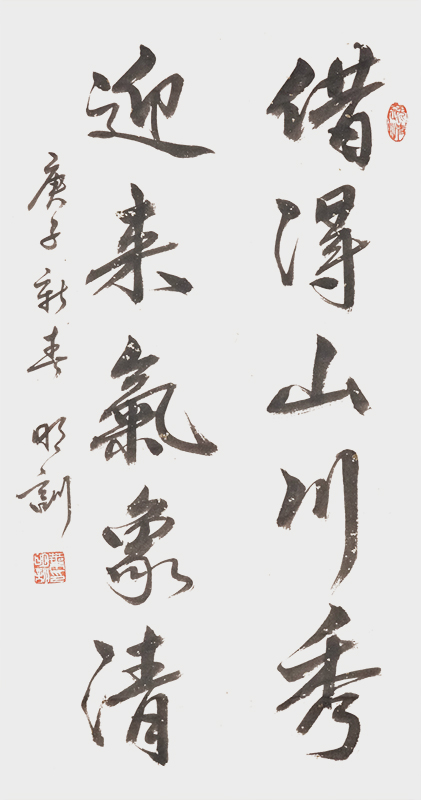 借得山川秀
迎来氣象清
庚子新春 明訓